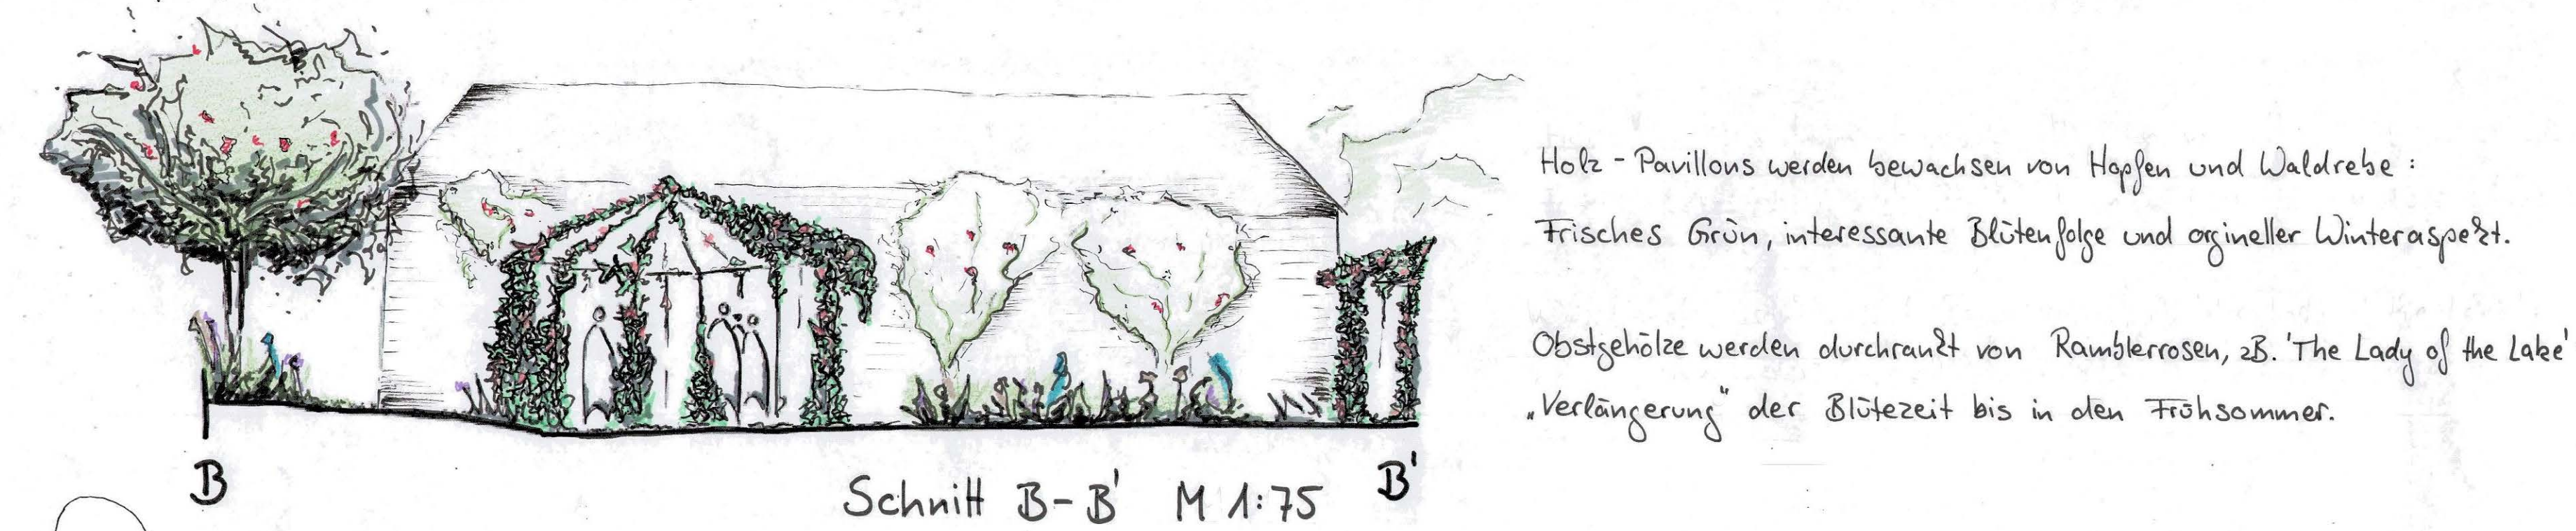 Holz - Pavillons werden bewachsen von Hopfen und Waldrebe :
Frisches Grün, interessante Blütenfolge und orgineller Winteraspekt.
Obstgehölze werden durchrankt von Ramblerrosen, zB. 'The Lady of the Lake'
„Verlängerung" der Blütezeit bis in den Frühsommer.
B
B'
Schnitt B-B' M 1:75